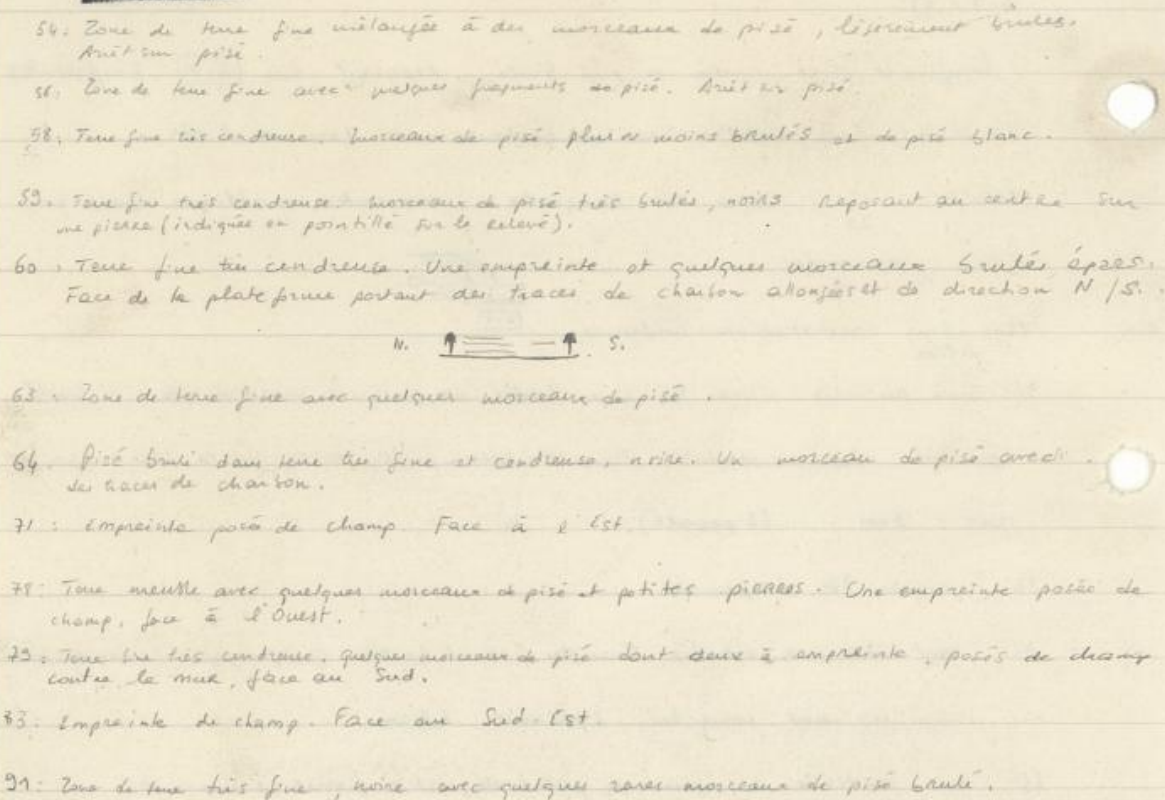 54: Zone de terre fine mélangée à des morceaux de pisé, légèrement brulés.
Arrêt sur pisé.
56: Zone de terre fine avec quelques fragments de pisé. Arrêt sur pisé.
58: Terre fine très cendreuse. Morceaux de pisé plus ou moins brulés et de pisé blanc.
59. Terre fine très cendreuse. Morceaux de pisé très brulés, noirs reposant au centre sur
une pierre (indiquée en pointillé sur le relevé).
60: Terre fine très cendreuse. Une empreinte et quelques morceaux brulés épars.
Face de la plateforme portant des traces de charbon allongées et de direction N/S.
N. S.
63: Zone de terre fine avec quelques morceaux de pisé.
64. Pisé brulé dans terre très fine et cendreuse, noire. Un morceau de pisé avec
des traces de charbon.
71: Empreinte posée de champ Face à l'Est
78: Terre meuble avec quelques morceaux de pisé et petites pierres. Une empreinte posée de
champ, face à l'Ouest.
79: Terre très cendreuse. Quelques morceaux de pisé dont deux à empreinte, posés de champ
contre le mur, face au Sud.
83: Empreinte de champ. Face au Sud Est
91: Zone de terre très fine, noire avec quelques rares morceaux de pisé brulé.